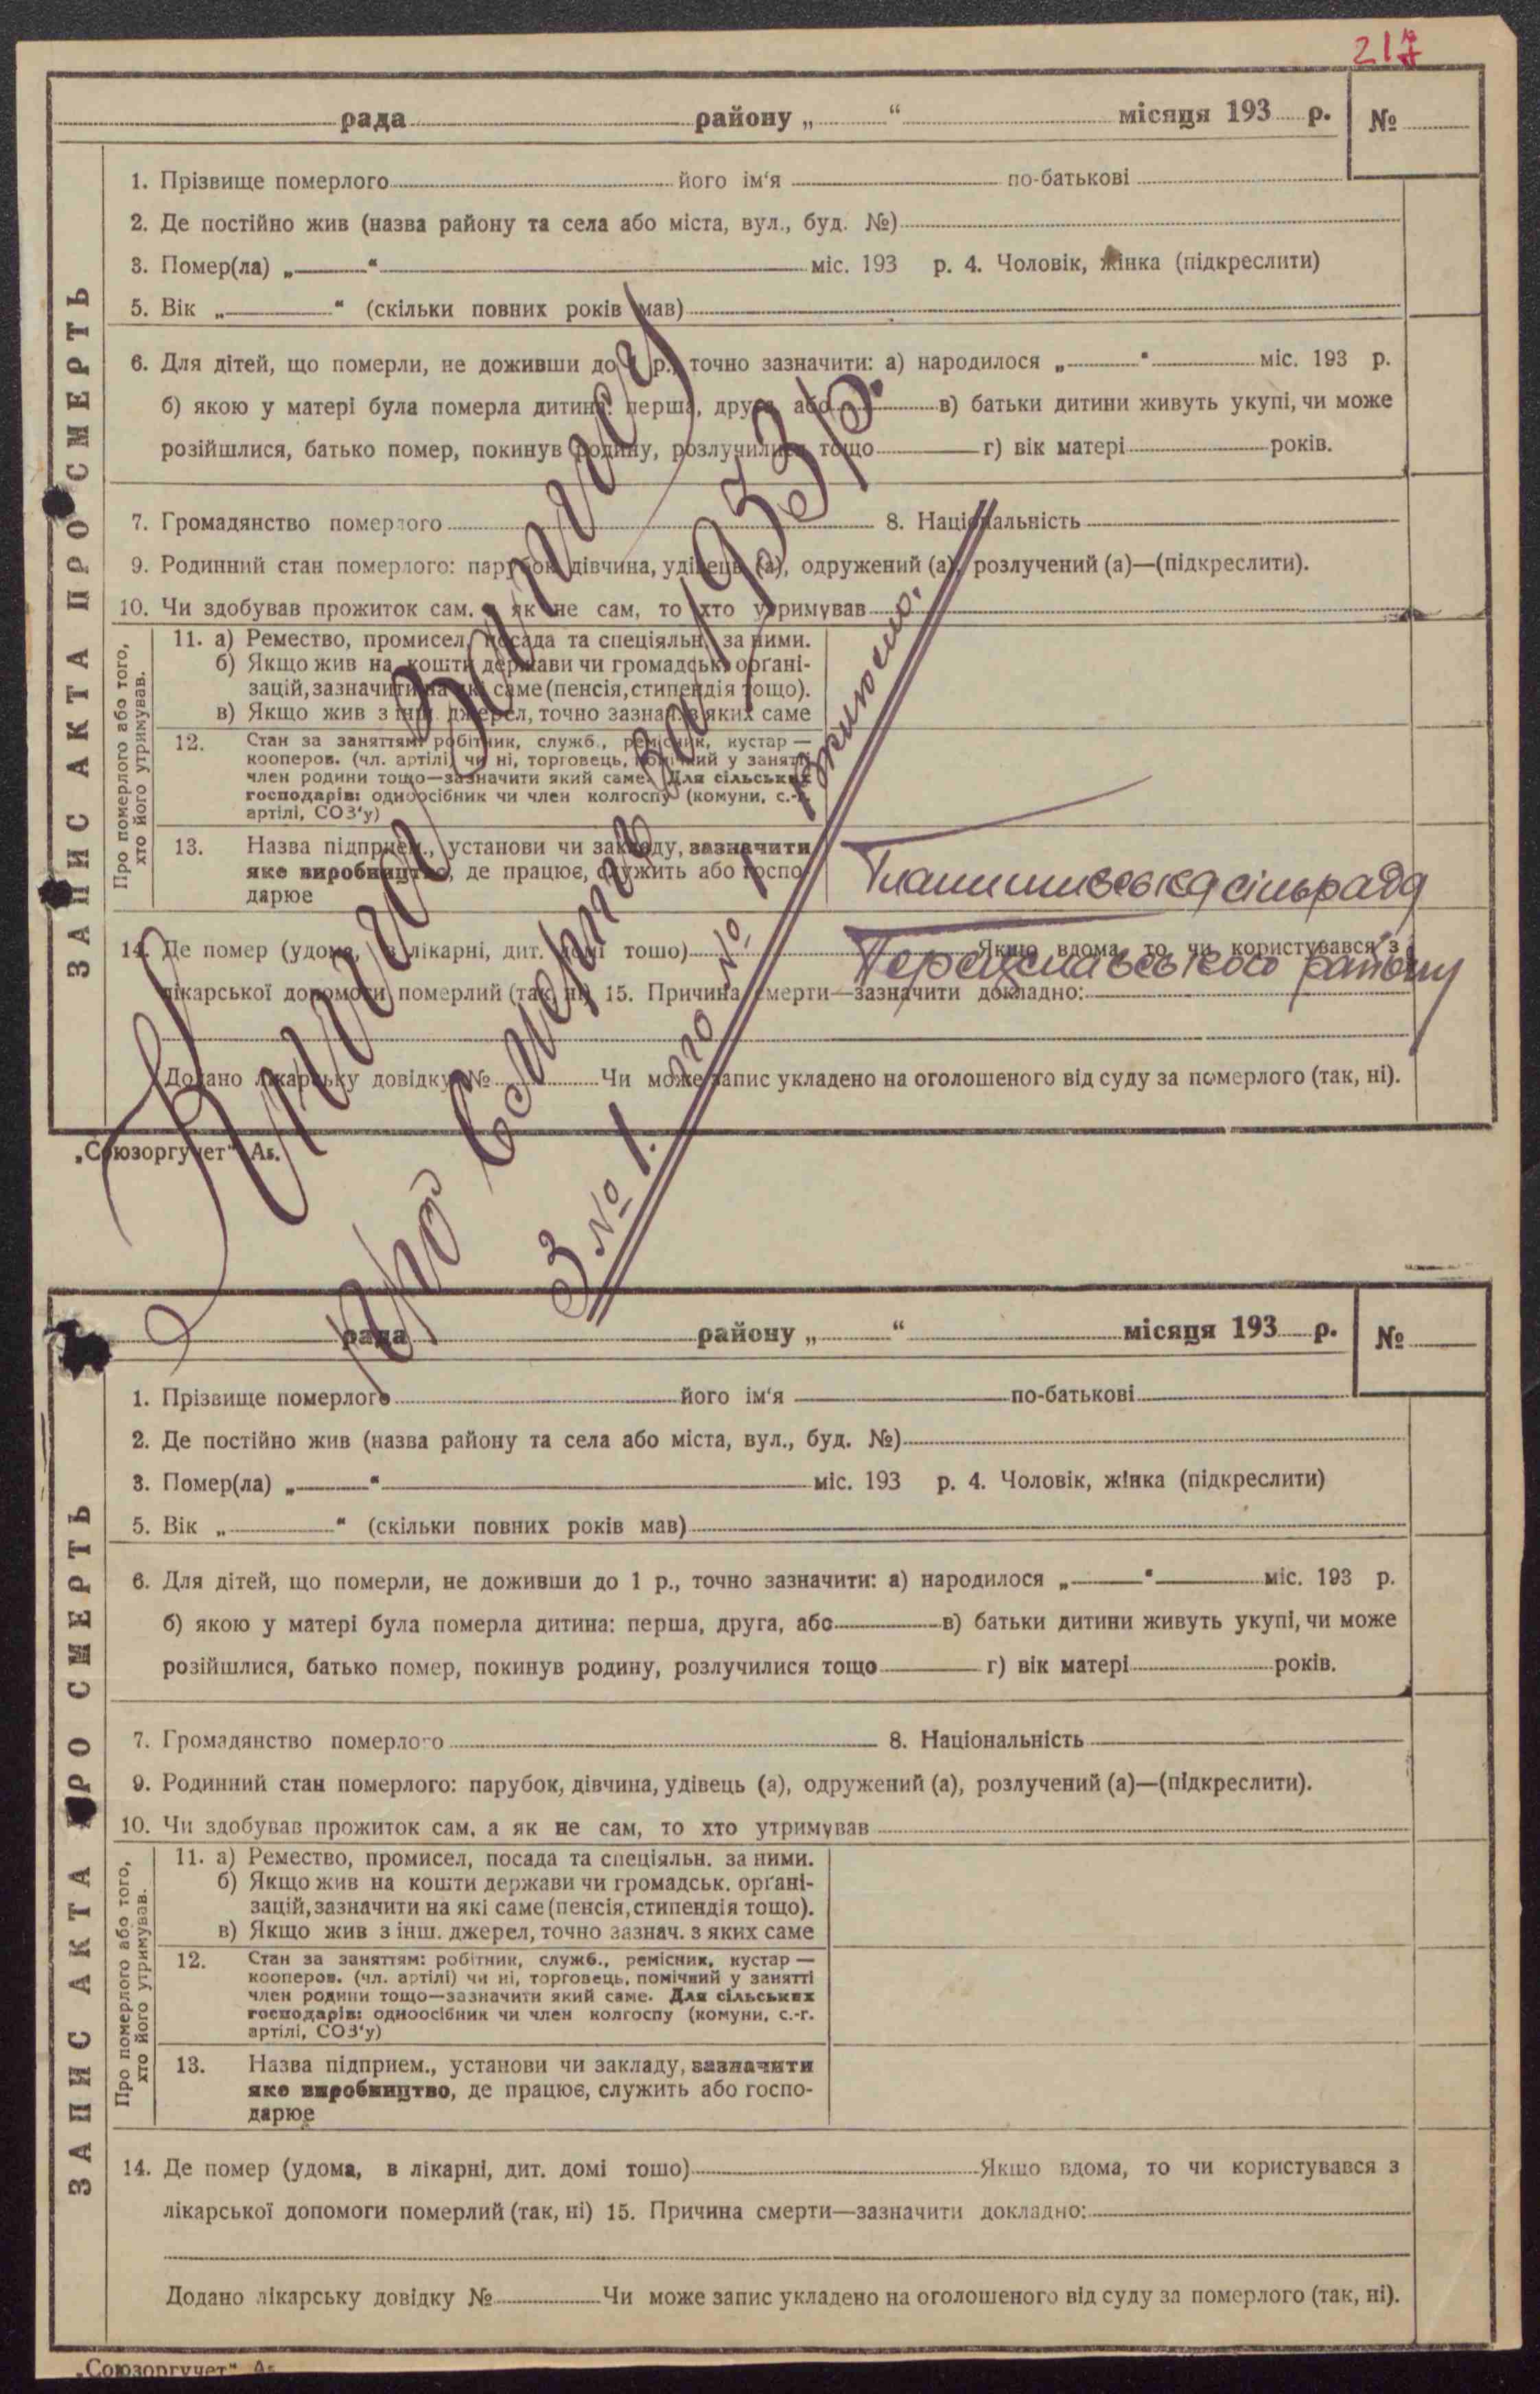 217
рада району „ “ місяця 193 р. №
ЗАПИС АКТА ПРО СМЕРТЬ
1. Прізвище померлого його ім‘я по-батькові
2. Де постійно жив (назва району та села або міста, вул., буд. №)
3. Помер(ла) „ “ міс. 193 р. 4. Чоловік, жінка (підкреслити)
5. Вік „ “ (скільки повних років мав)
6. Для дітей, що померли, не доживши до 1 р., точно зазначити: а) народилося „ “ міс. 193 р.
б) якою у матері була померла дитина: перша, друга, або в) батьки дитини живуть укупі, чи може
розійшлися, батько помер, покинув родину, розлучилися тощо г) вік матері років.
7. Громадянство померлого 8. Національність
9. Родинний стан померлого: парубок, дівчина, удівець (а), одружений (а), розлучений (а)—(підкреслити).
10. Чи здобував прожиток сам, а як не сам, то хто утримував
Про померлого або того,
хто його утримував.
11. а) Ремество, промисел, посада та спеціяльн. за ними.
б) Якщо жив на кошти держави чи громадськ. орґані-
зацій, зазначити на які саме (пенсія, стипендія тощо).
в) Якщо жив з інш. джерел, точно зазнач. з яких саме
12. Стан за заняттям: робітник, служб., ремісник, кустар —
кооперов. (чл. артілі) чи ні, торговець, помічний у занятті
член родини тощо—зазначити який саме. Для сільських
господарів: одноосібник чи член колгоспу (комуни, с.-г.
артілі, СОЗ‘у)
13. Назва підприєм., установи чи закладу, зазначити
яке виробництво, де працює, служить або госпо-
дарює
14. Де помер (удома, в лікарні, дит. домі тошо) Якщо вдома, то чи користувався з
лікарської допомоги померлий (так, ні) 15. Причина смерти—зазначити докладно:
Додано лікарську довідку № Чи може запис укладено на оголошеного від суду за померлого (так, ні).
„Союзоргучет“
Книга Записей
про смерть за 1933 р.
з № 1. по № 1 включно.
Ташишівська сільрада
Переяславського району
рада району „ “ місяця 193 р. №
ЗАПИС АКТА ПРО СМЕРТЬ
1. Прізвище померлого його ім‘я по-батькові
2. Де постійно жив (назва району та села або міста, вул., буд. №)
3. Помер(ла) „ “ міс. 193 р. 4. Чоловік, жінка (підкреслити)
5. Вік „ “ (скільки повних років мав)
6. Для дітей, що померли, не доживши до 1 р., точно зазначити: а) народилося „ “ міс. 193 р.
б) якою у матері була померла дитина: перша, друга, або в) батьки дитини живуть укупі, чи може
розійшлися, батько помер, покинув родину, розлучилися тощо г) вік матері років.
7. Громадянство померлого 8. Національність
9. Родинний стан померлого: парубок, дівчина, удівець (а), одружений (а), розлучений (а)—(підкреслити).
10. Чи здобував прожиток сам, а як не сам, то хто утримував
Про померлого або того,
хто його утримував.
11. а) Ремество, промисел, посада та спеціяльн. за ними.
б) Якщо жив на кошти держави чи громадськ. орґані-
зацій, зазначити на які саме (пенсія, стипендія тощо).
в) Якщо жив з інш. джерел, точно зазнач. з яких саме
12. Стан за заняттям: робітник, служб., ремісник, кустар —
кооперов. (чл. артілі) чи ні, торговець, помічний у занятті
член родини тощо—зазначити який саме. Для сільських
господарів: одноосібник чи член колгоспу (комуни, с.-г.
артілі, СОЗ‘у)
13. Назва підприєм., установи чи закладу, зазначити
яке виробництво, де працює, служить або госпо-
дарює
14. Де помер (удома, в лікарні, дит. домі тошо) Якщо вдома, то чи користувався з
лікарської допомоги померлий (так, ні) 15. Причина смерти—зазначити докладно:
Додано лікарську довідку № Чи може запис укладено на оголошеного від суду за померлого (так, ні).
„Союзоргучет“